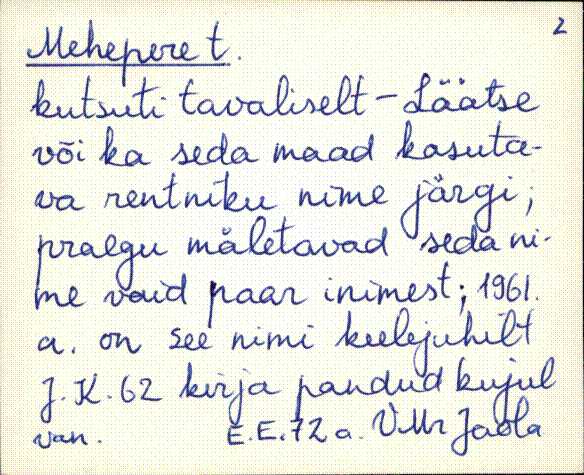 2
Mehepere t.
kutsuti tavaliselt - Läätse
või ka seda maad kasuta-
va rentniku nime järgi;
praegu mäletavad seda ni-
me vaid paar inimest; 1961.
a. on see nimi keelejuhilt
J.K. 62 kirja pandud kujul
van. E.E. 72 a. VMr Jaola